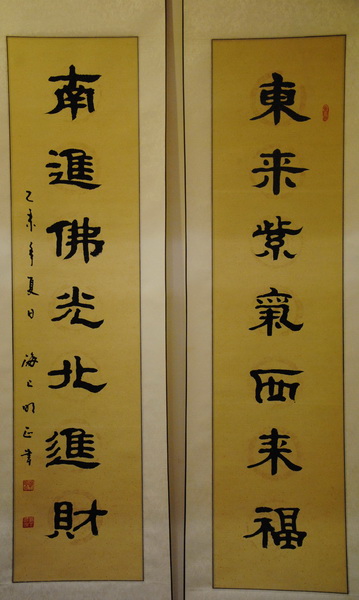 東来紫氣西来福
南進佛光北進財
乙未年夏日 海上明正書